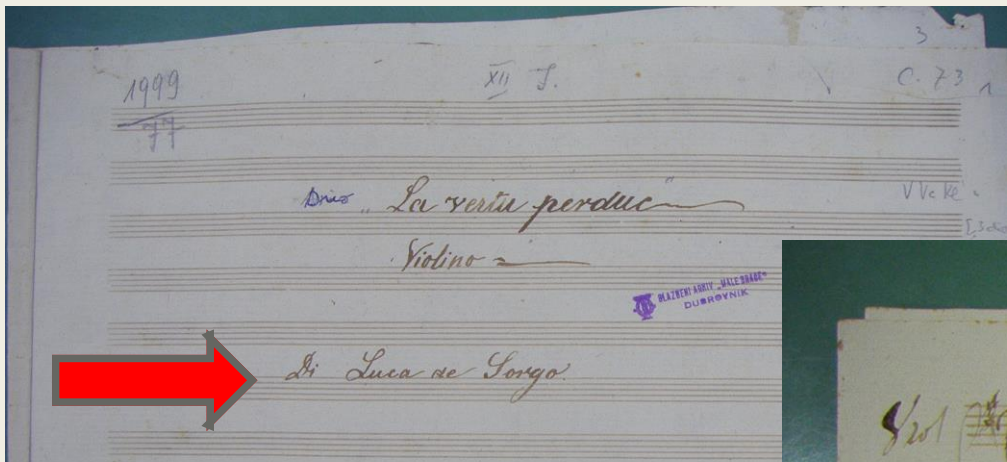 3
1999 XII J. C. 73 1
77
Drio "La vertu perdue"
V Vc Ke
Violino
GLAZBENI ARHIV "MALE BRAĆE"
DUBROVNIK
Di Luca de Sorgo.